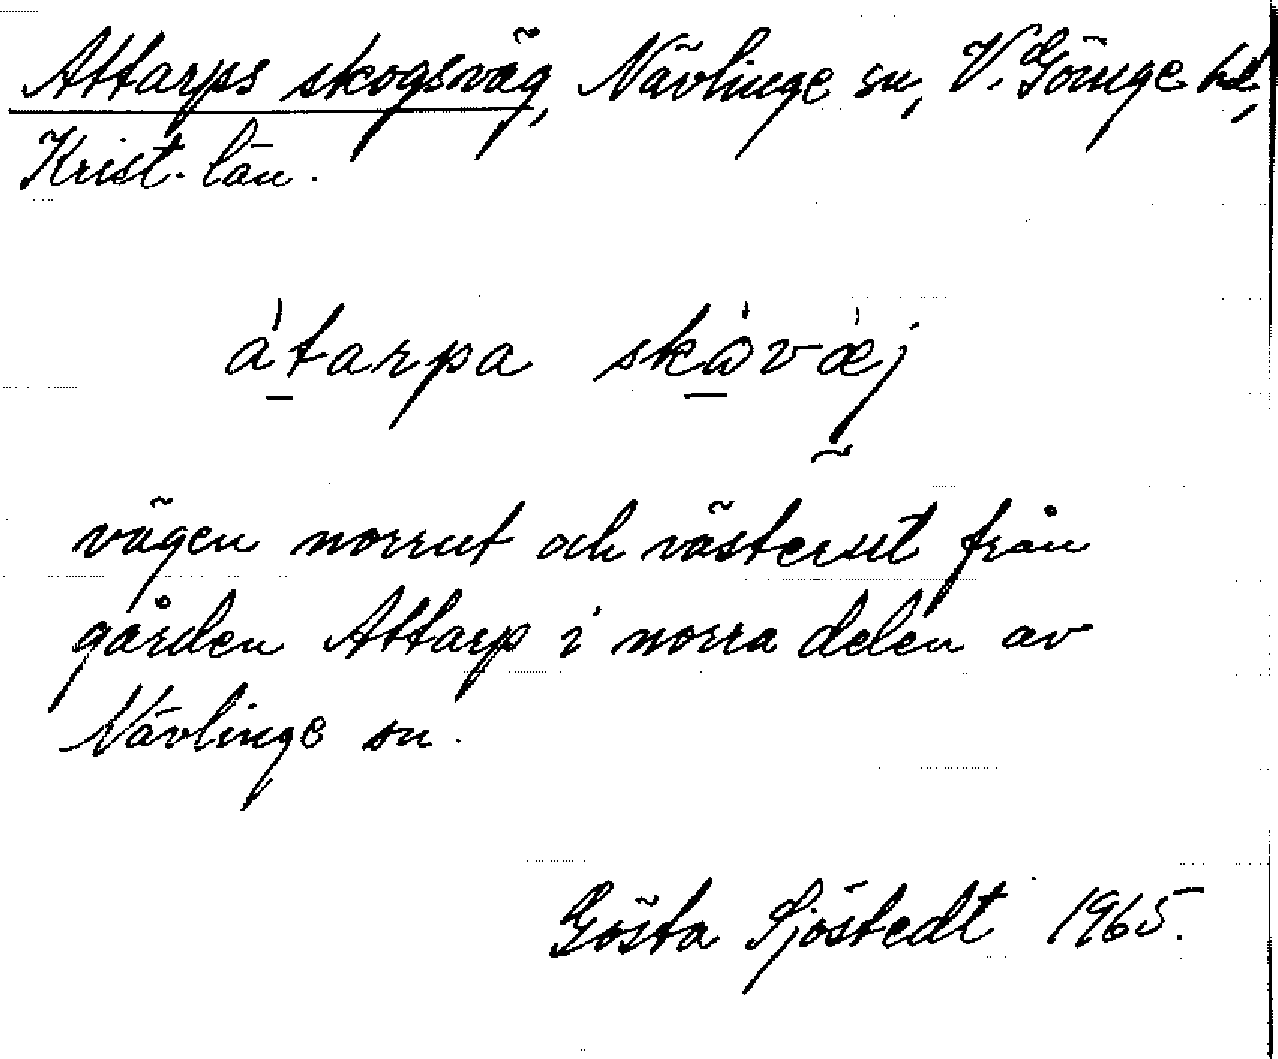 Attarps skogsväg, Nävlinge sn, V. Göinge hd,
Krist. län.
àtarpa skàvæj
vägen norrut och västerut från
gården Attarp i norra delen av
Nävlinge sn.
Gösta Sjöstedt 1965.